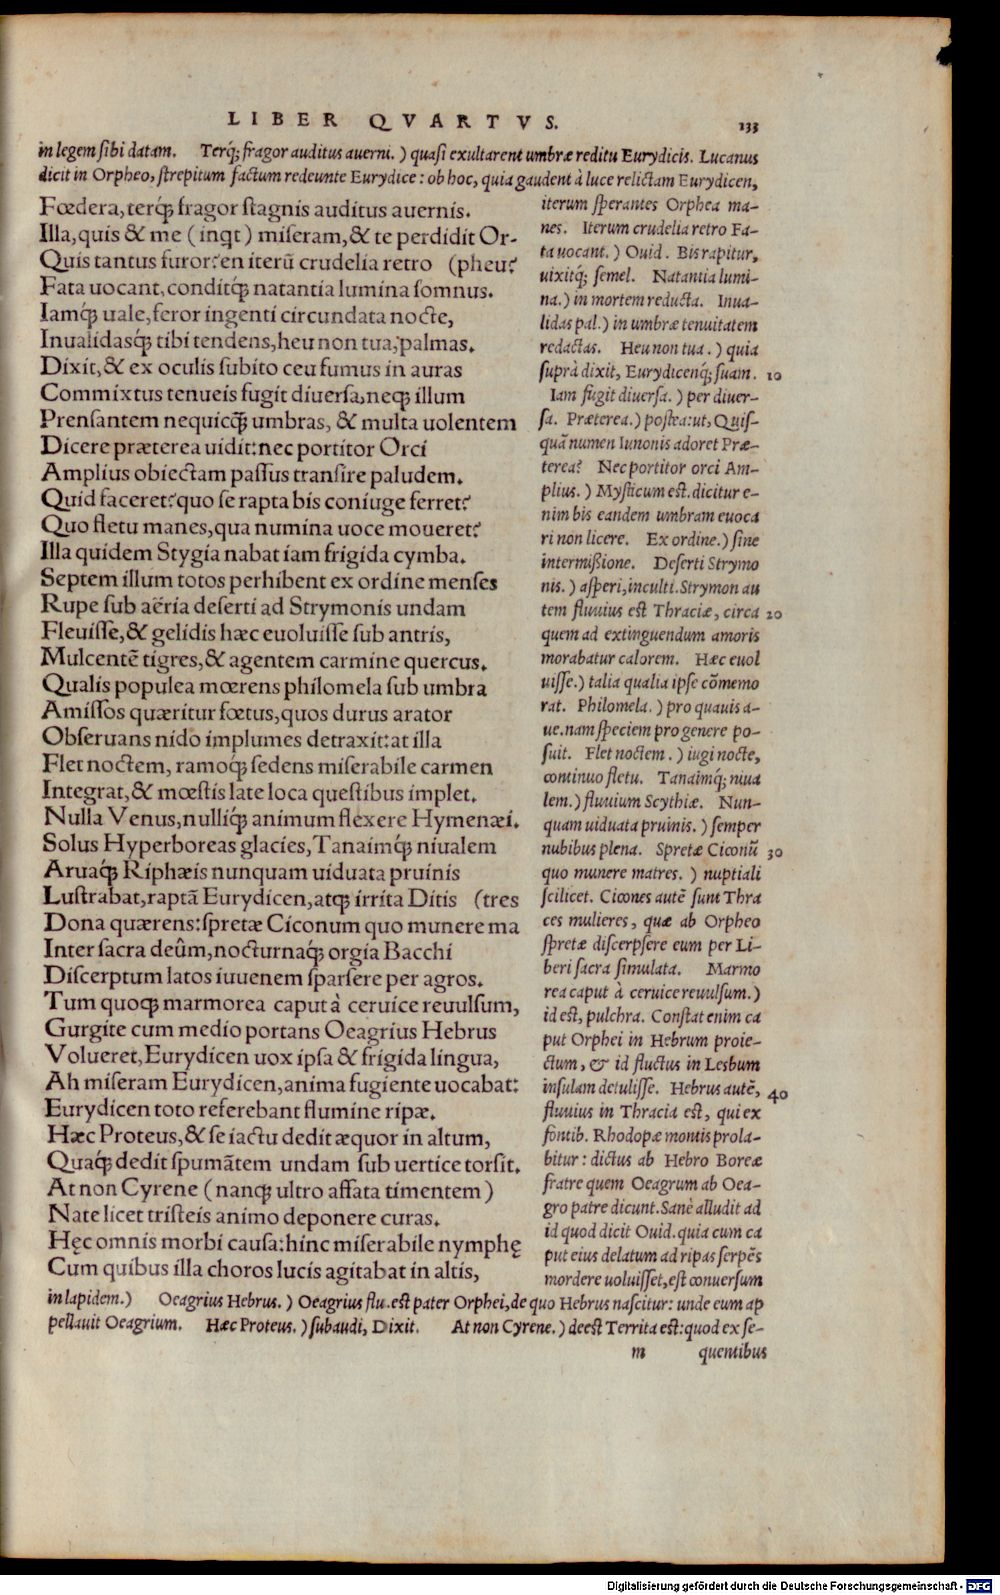 LIBER QVARTVS.
133
in legem sibi datam. Terq́; fragor auditus auerni.) quasi exultarent umbræ reditu Eurydicis. Lucanus
dicit in Orpheo, strepitum factum redeunte Eurydice: ob hoc, quia gaudent à luce relictam Eurydicen,
Fœdera, terq́; fragor stagnis auditus auernis.
Illa, quis & me (inqt) miseram, & te perdidit Or-
Quis tantus furor? en iterũ crudelia retro (pheu?
Fata uocant, conditq́; natantia lumina somnus.
Iamq́; uale, feror ingenti circundata nocte,
Inualidasq́; tibi tendens, heu non tua, palmas.
Dixit, & ex oculis subito ceu fumus in auras
Commixtus tenueis fugit diuersa, neq; illum
Prensantem nequicq̃; umbras, & multa uolentem
Dicere præterea uidit: nec portitor Orci
Amplius obiectam passus transire paludem.
Quid faceret? quo se rapta bis coniuge ferret?
Quo fletu manes, qua numina uoce moueret?
Illa quidem Stygia nabat iam frigida cymba.
Septem illum totos perhibent ex ordine menses
Rupe sub aëria deserti ad Strymonis undam
Fleuisse, & gelidis hæc euoluisse sub antris,
Mulcentẽ tigres, & agentem carmine quercus.
Qualis populea mœrens philomela sub umbra
Amissos quæritur fœtus, quos durus arator
Obseruans nido implumes detraxit: at illa
Flet noctem, ramoq́; sedens miserabile carmen
Integrat, & mœstis late loca questibus implet.
Nulla Venus, nulliq́; animum flexere Hymenæi.
Solus Hyperboreas glacies, Tanaimq́; niualem
Aruaq́; Riphæis nunquam uiduata pruinis
Lustrabat, raptã Eurydicen, atq; irrita Ditis (tres
Dona quærens: spretæ Ciconum quo munere ma
Inter sacra deûm, nocturnaq́; orgia Bacchi
Discerptum latos iuuenem sparsere per agros.
Tum quoq; marmorea caput à ceruice reuulsum,
Gurgite cum medio portans Oeagrius Hebrus
Volueret, Eurydicen uox ipsa & frigida lingua,
Ah miseram Eurydicen, anima fugiente uocabat:
Eurydicen toto referebant flumine ripæ.
Hæc Proteus, & se iactu dedit æquor in altum,
Quaq́; dedit spumãtem undam sub uertice torsit.
At non Cyrene (nanq; ultro affata timentem)
Nate licet tristeis animo deponere curas.
Hęc omnis morbi causa: hinc miserabile nymphę
Cum quibus illa choros lucis agitabat in altis,
iterum sperantes Orphea ma-
nes. Iterum crudelia retro Fa-
ta uocant.) Ouid. Bis rapitur,
uixitq́; semel. Natantia lumi-
na.) in mortem reducta. Inua-
lidas pal.) in umbræ tenuitatem
redactas. Heu non tua.) quia
suprà dixit, Eurydicenq́; suam. 10
Iam fugit diuersa.) per diuer-
sa. Præterea.) postea: ut, Quis-
quã numen Iunonis adoret Præ-
terea? Nec portitor orci Am-
plius.) Mysticum est. dicitur e-
nim bis eandem umbram euoca
ri non licere. Ex ordine.) sine
intermißione. Deserti Strymo
nis.) asperi, inculti. Strymon au
tem fluuius est Thraciæ, circa 20
quem ad extinguendum amoris
morabatur calorem. Hæc euol
uisse.) talia qualia ipse cõmemo
rat. Philomela.) pro quauis a-
ue. nam speciem pro genere po-
suit. Flet noctem.) iugi nocte,
continuo fletu. Tanaimq́; niua
lem.) fluuium Scythiæ. Nun-
quam uiduata pruinis.) semper
nubibus plena. Spretæ Ciconũ 30
quo munere matres.) nuptiali
scilicet. Cicones autẽ sunt Thra
ces mulieres, quæ ab Orpheo
spretæ discerpsere eum per Li-
beri sacra simulata. Marmo
rea caput à ceruice reuulsum.)
id est, pulchra. Constat enim ca
put Orphei in Hebrum proie-
ctum, & id fluctus in Lesbum
insulam detulisse. Hebrus autẽ, 40
fluuius in Thracia est, qui ex
fontib. Rhodopæ montis prola-
bitur: dictus ab Hebro Boreæ
fratre quem Oeagrum ab Oea-
gro patre dicunt. Sanè alludit ad
id quod dicit Ouid. quia cum ca
put eius delatum ad ripas serpẽs
mordere uoluisset, est conuersum
in lapidem.) Oeagrius Hebrus.) Oeagrius flu. est pater Orphei, de quo Hebrus nascitur: unde eum ap
pellauit Oeagrium. Hæc Proteus.) subaudi, Dixit. At non Cyrene.) deest Territa est: quod ex se-
m quentibus
Digitalisierung gefördert durch die Deutsche Forschungsgemeinschaft - DFG